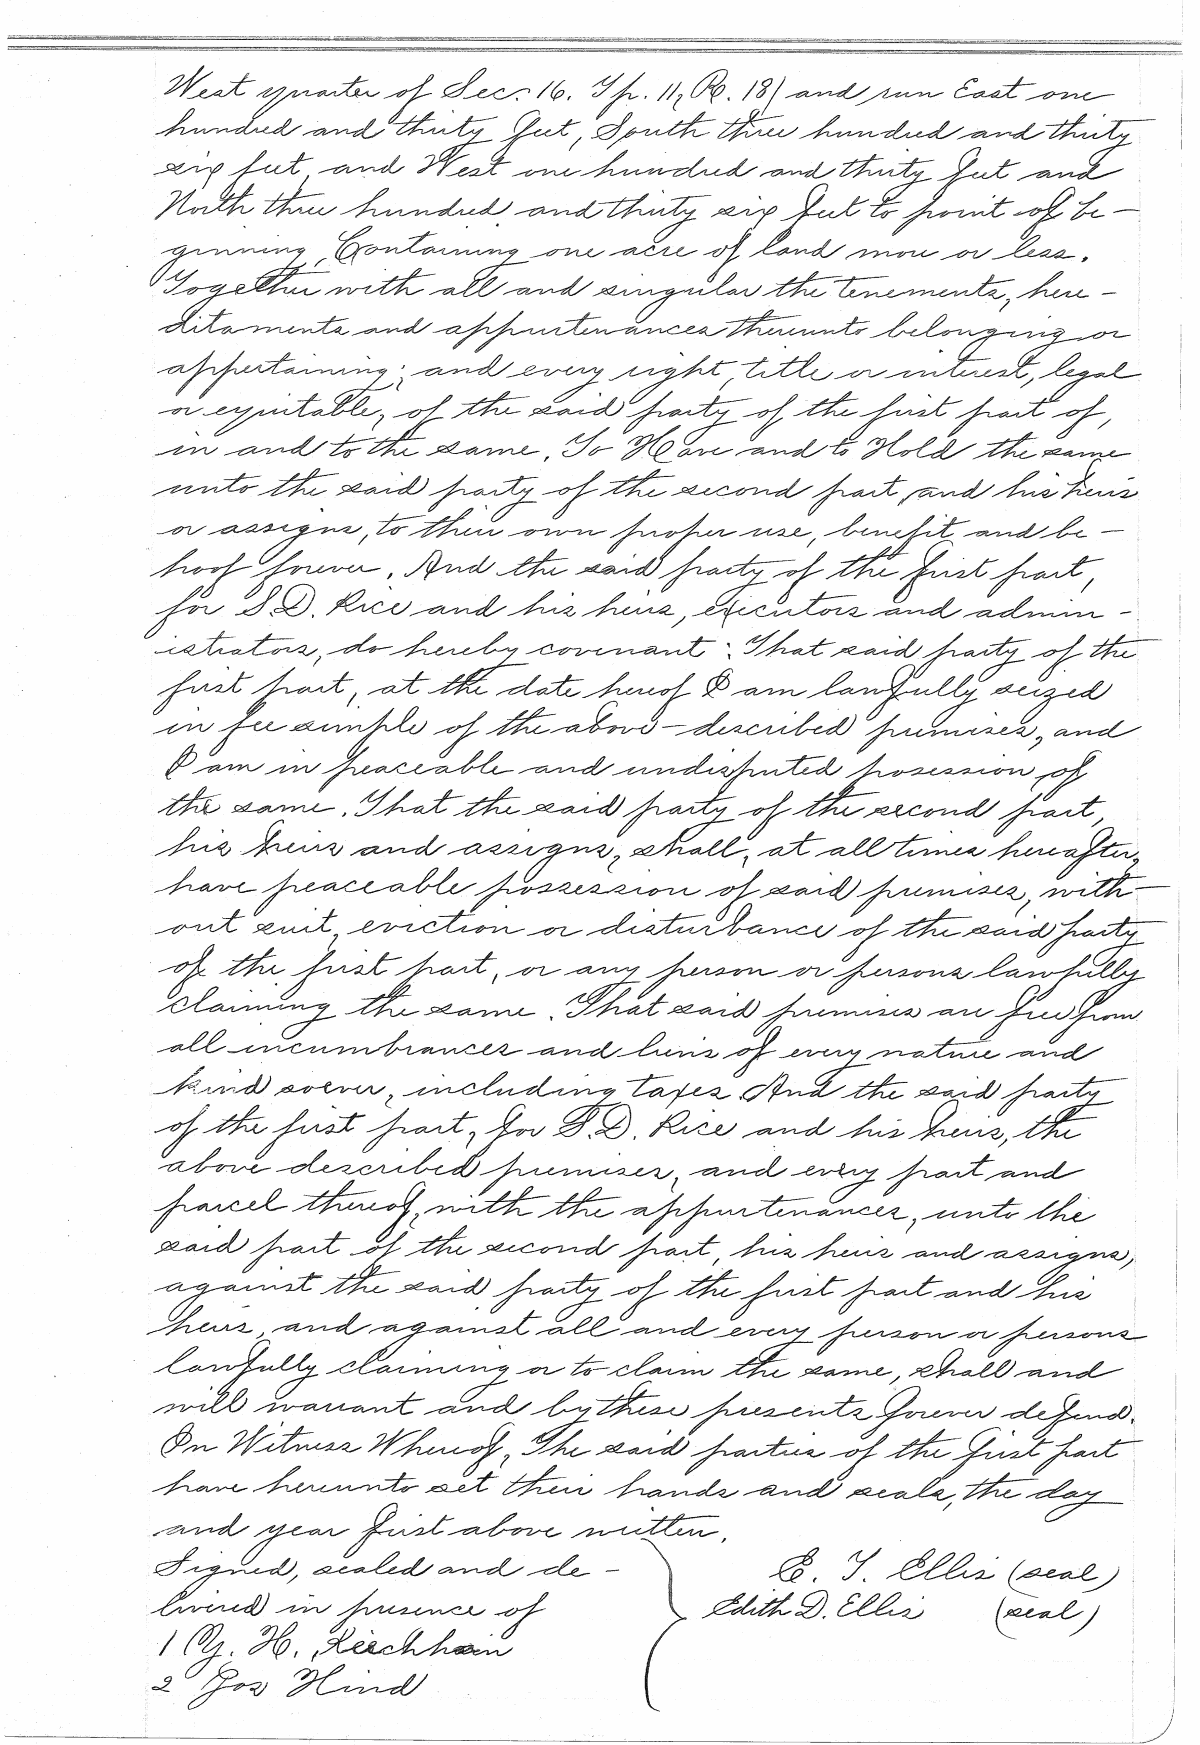 West quarter of Sec. 16. Tp. 11, R. 18) and run East one
hundred and thirty feet, South three hundred and thirty
six feet, and West one hundred and thirty feet and
North three hundred and thirty six feet to point of be-
ginning, Containing one acre of land more or less.
Together with all and singular the tenements, here-
ditaments and appurtenances thereunto belonging or
appertaining; and every right, title or interest, legal
or equitable, of the said party of the first part of,
in and to the same. To Have and to Hold the same
unto the said party of the second part, and his heirs
or assigns, to their own proper use, benefit and be-
hoof forever. And the said party of the first part,
for S.D. Rice and his heirs, executors and admin-
istrators, do hereby covenant: That said party of the
first part, at the date hereof I am lawfully seized
in fee simple of the above-described premises, and
I am in peaceable and undisputed posession of
the same. That the said party of the second part,
his heirs and assigns, shall, at all times hereafter,
have peaceable possession of said premises, with-
out suit, eviction or disturbance of the said party
of the first part, or any person or persons lawfully
claiming the same. That said premises are free from
all incumbrances and liens of every nature and
kind soever, including taxes. And the said party
of the first part, for S.D. Rice and his heirs, the
above described premises, and every part and
parcel thereof, with the appurtenances, unto the
said part of the second part, his heirs and assigns,
against the said party of the first part and his
heirs, and against all and every person or persons
lawfully claiming or to claim the same, shall and
will warrant and by these presents forever defend.
In Witness Whereof, The said parties of the first part
have hereunto set their hands and seals, the day
and year first above written.
Signed, sealed and de-
livered in presence of
1 G. H. Kirchhain
2 Jos Hind
E. T. Ellis (seal)
Edith D. Ellis (seal)